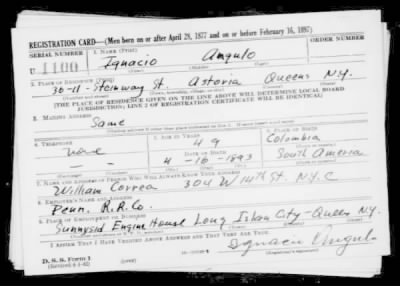 REGISTRATION CARD—(Men born on or after April 28, 1877 and on or before February 16, 1897)
SERIAL NUMBER 1. NAME (Print) ORDER NUMBER
U 1100 Ignacio Angulo
(First) (Middle) (Last)
2. PLACE OF RESIDENCE (Print)
30-11-Steinway St. Astoria Queens N.Y.
(Number and street) (Town, township, village, or city) (County) (State)
[THE PLACE OF RESIDENCE GIVEN ON THE LINE ABOVE WILL DETERMINE LOCAL BOARD
JURISDICTION; LINE 2 OF REGISTRATION CERTIFICATE WILL BE IDENTICAL]
3. MAILING ADDRESS
Same
4. TELEPHONE 5. AGE IN YEARS 6. PLACE OF BIRTH
none 49 Colombia
DATE OF BIRTH
4-16-1893 South America
7. NAME AND ADDRESS OF PERSON WHO WILL ALWAYS KNOW YOUR ADDRESS
William Correa 304 W 14th St. N.Y.C
8. EMPLOYER'S NAME AND ADDRESS
Penn. R.R.Co.
9. PLACE OF EMPLOYMENT OR BUSINESS
Sunnysid Engine House Long Islan City-Queens N.Y.
I AFFIRM THAT I HAVE VERIFIED ABOVE ANSWERS AND THAT THEY ARE TRUE.
D. S. S. Form 1 Ignacio Angulo
(Revised 4-1-42)